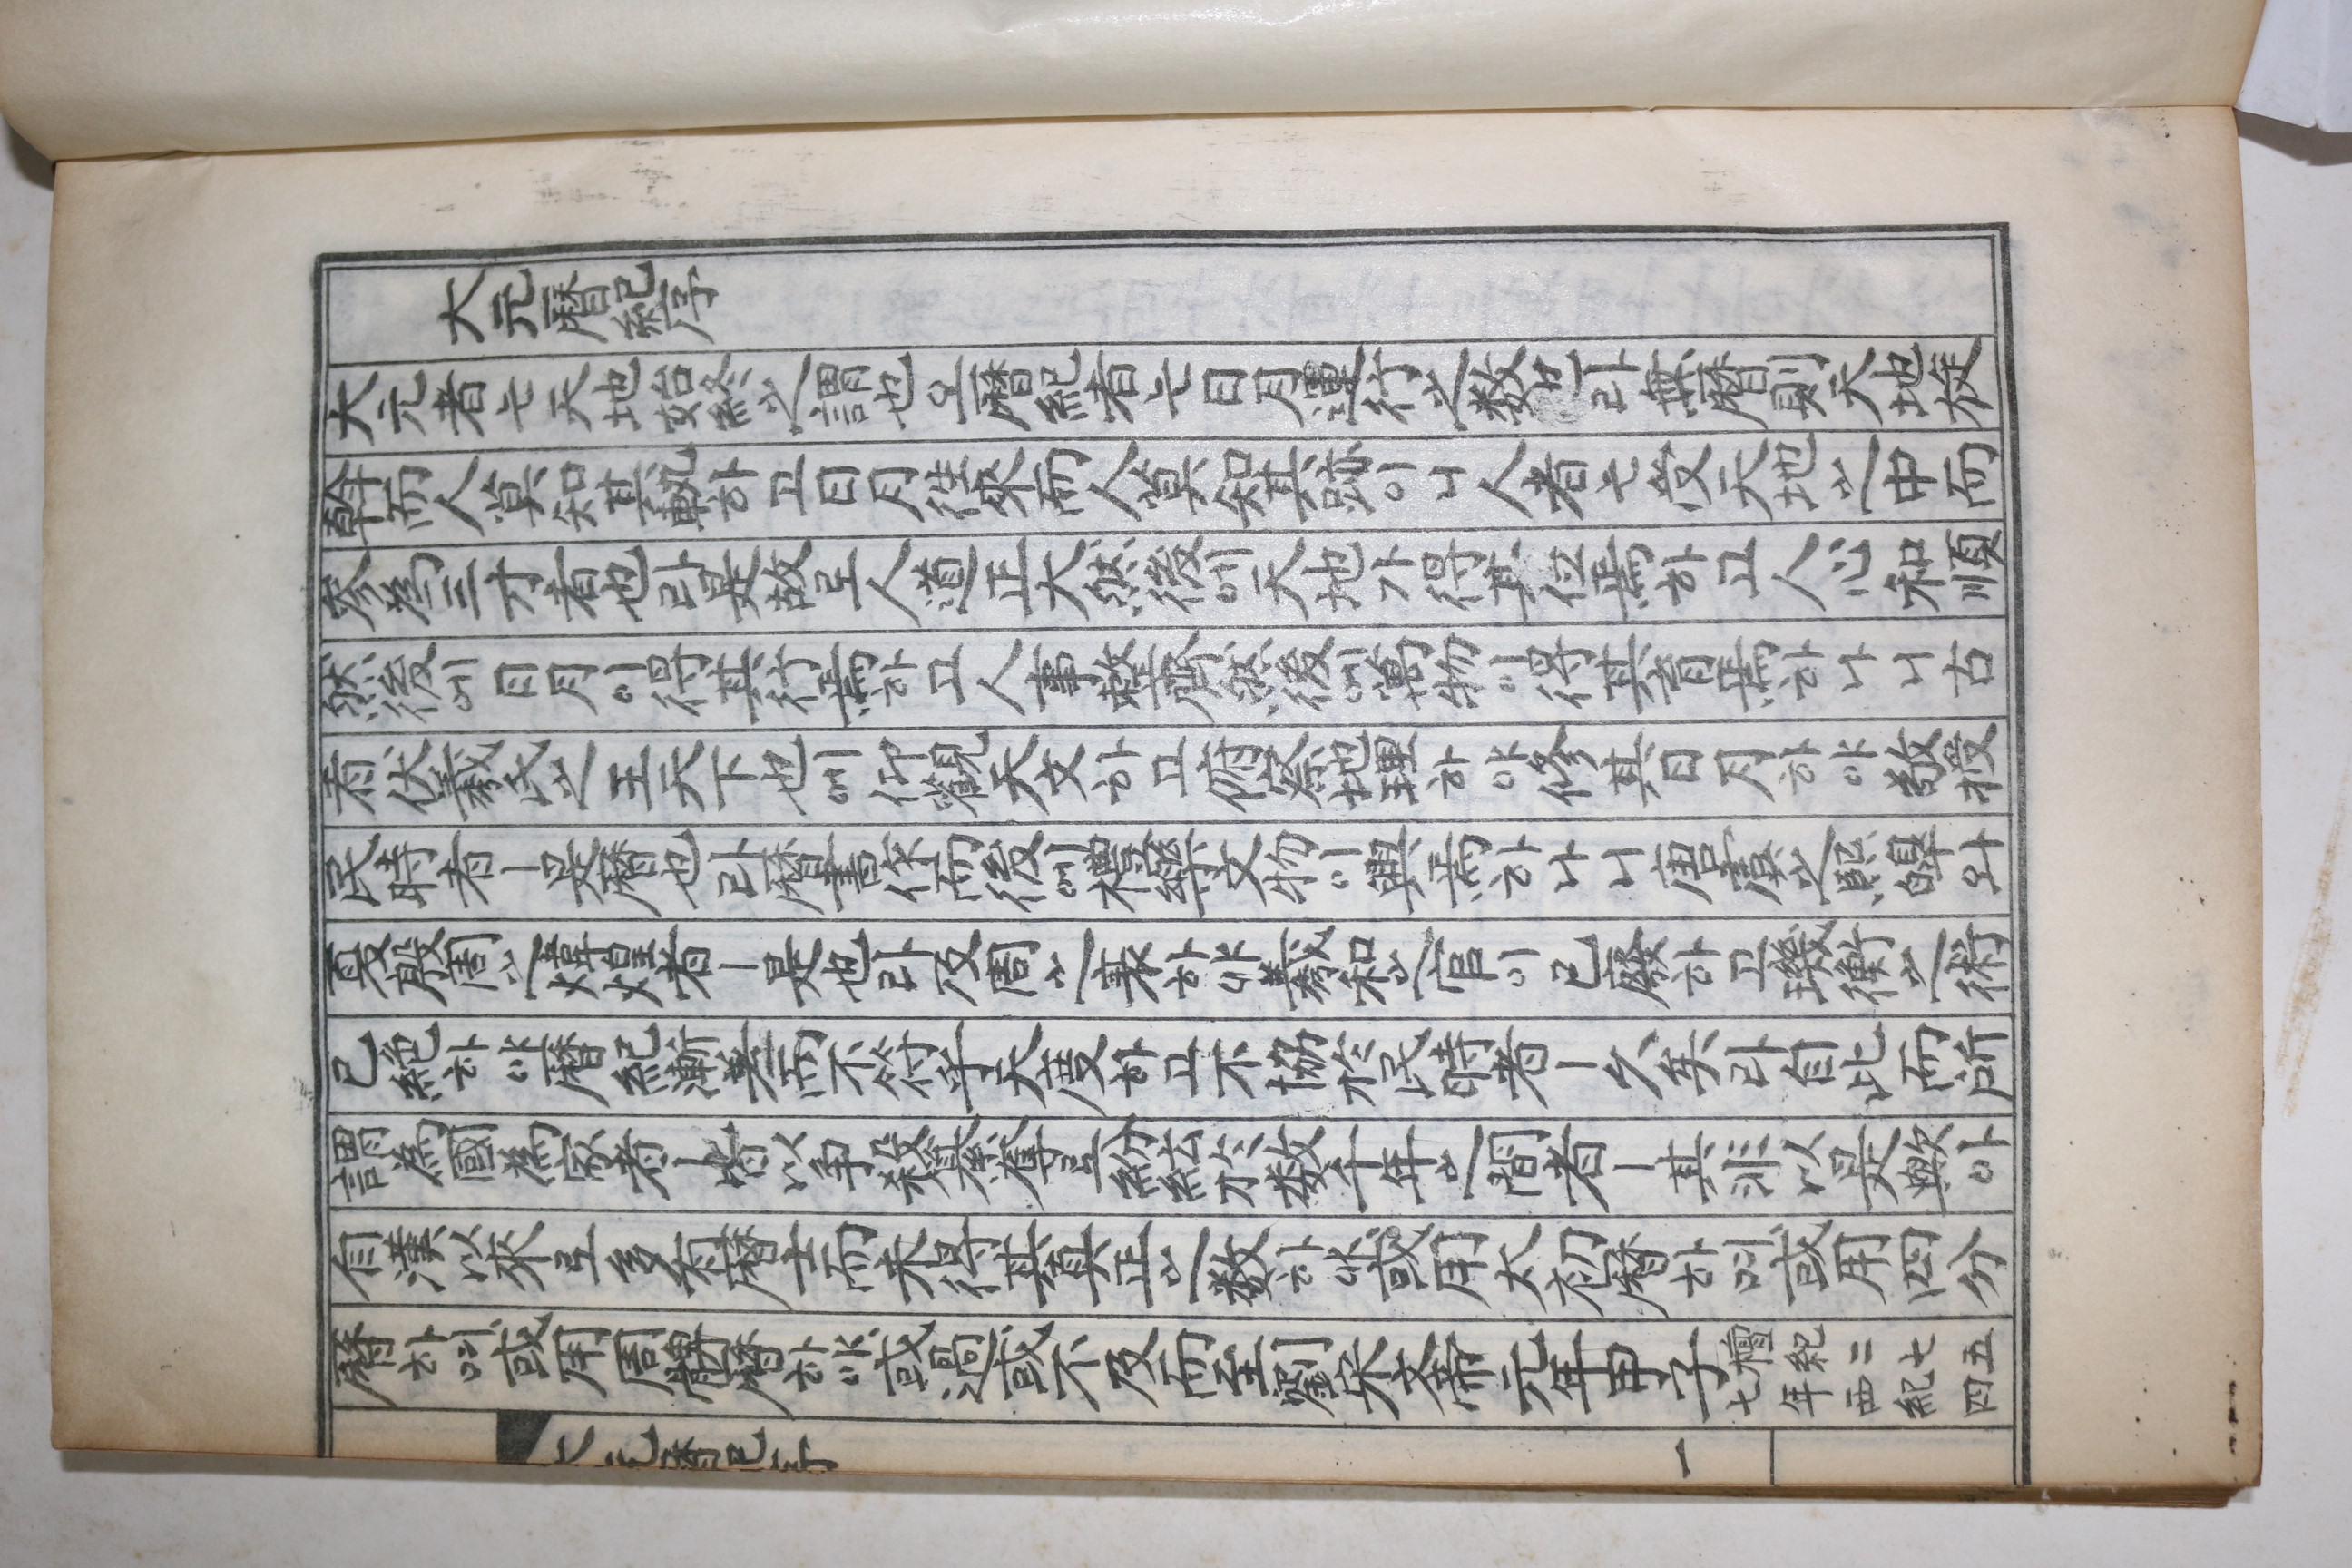 大元曆紀序
大元者는天地始終之謂也오曆紀者는日月運行之数也라無曆則天地旋
斡而人莫知其軌하고日月徃來而人莫知其跡이니人者는受天地之中而
参為三才者也라是故로人道正大然後에天地가得其位焉하고人心和順
然後에日月이得其行焉하고人事整齊然後에萬物이得其育焉하나니古
者伏羲氏之王天下也에仰觀天文하고俯察地理하야修其日月하야敬授
民時者ㅣ是曆也라曆書作而後에禮樂文物이興焉하나니唐虞之熙皡와
夏殷周之煒煌者ㅣ是也라及周之衰하야羲和之官이已廢하고璣衡之術
已絶하야曆紀漸差而不符乎天度하고不協於民時者ㅣ久矣라自此而所
謂為國為家者ㅣ皆以争殺簒奪로紛紜於数千年之間者ㅣ其非以是歟아
自漢以來로多有曆士而未得其真正之数하야或用太初曆하며或用四分
曆하며或用周髀曆하야或過或不及而至劉宋文帝元年甲子檀紀二七五
七年西紀四
大元曆紀序
一